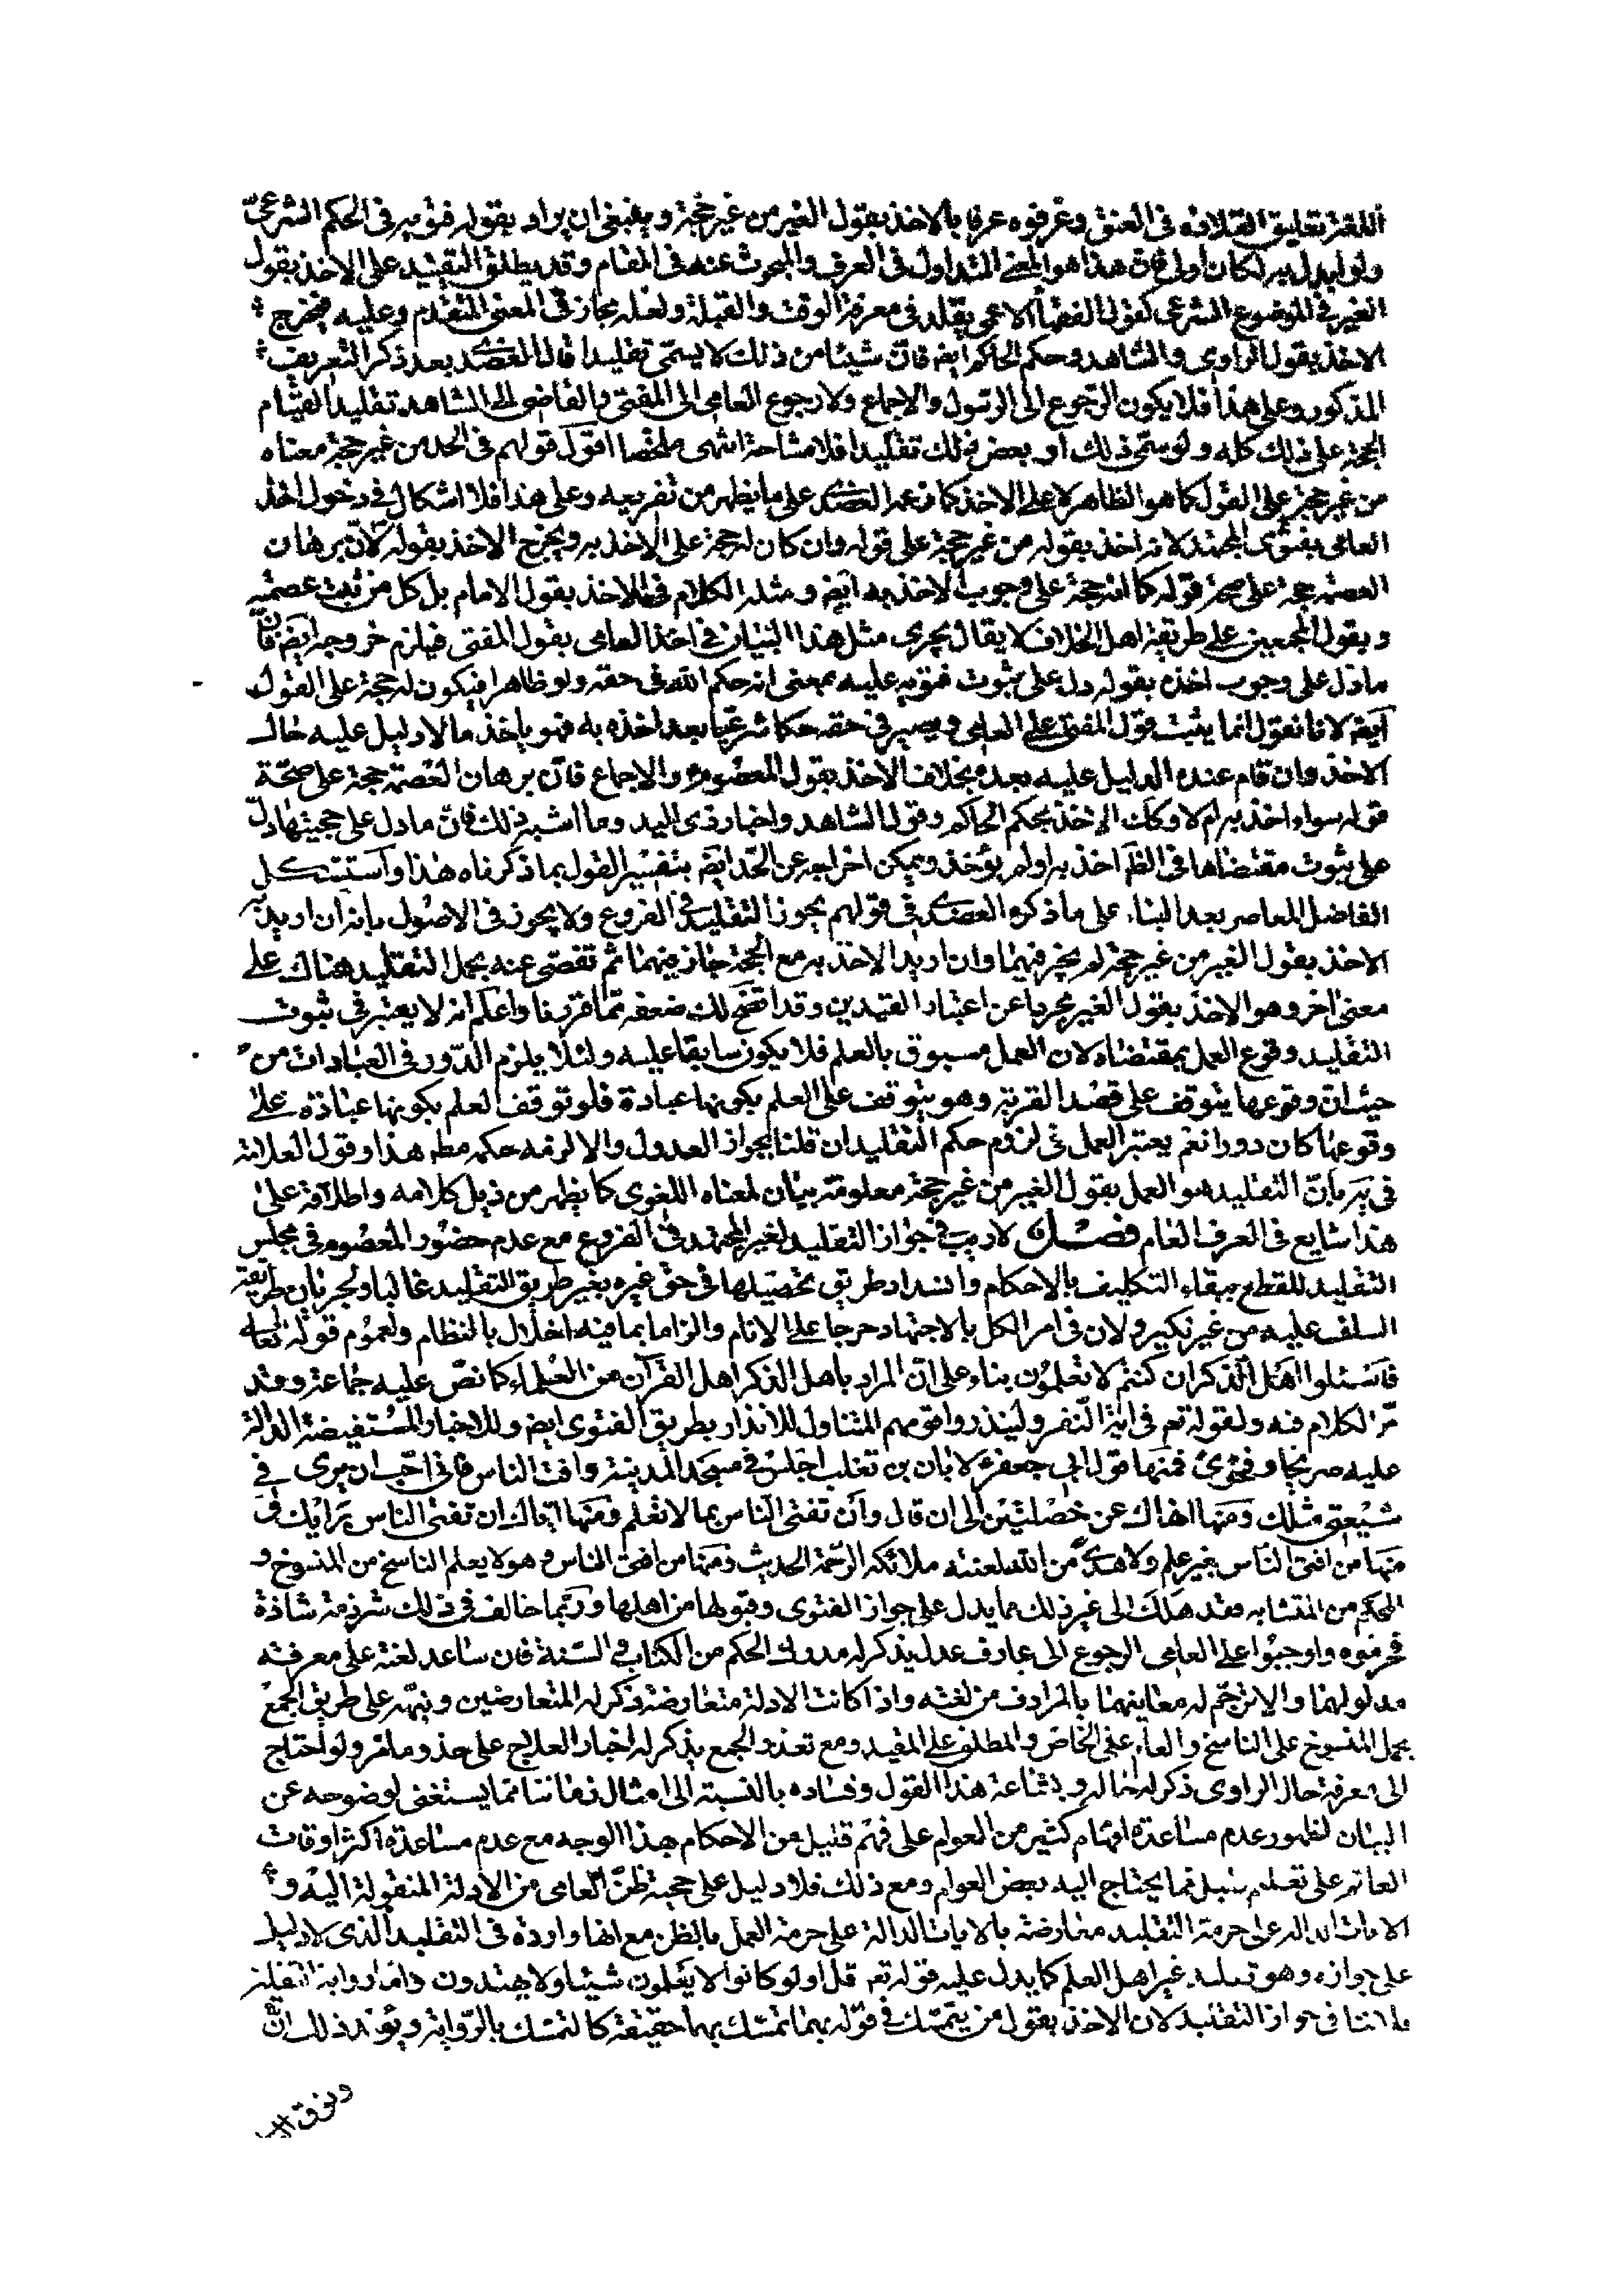 اللغة تعليق القلادة فى العنق وعرفوه عرفا بالاخذ بقول الغير من غير حجة وينبغى ان يراد بقوله فتويه فى الحكم الشرعىّ
ولو ابدل به لكان اولى فانّ هذا هو المعنى المتداول فى العرف والمبحوث عنه فى المقام وقد يطلق التقليد على الاخذ بقول
الغير فى الموضوع الشرعى كقول الفقهاء الاعمى يقلد فى معرفة الوقت والقبلة ولعله مجاز فى المعنى المتقدم وعليه فيخرج
الاخذ بقول الراوى والشاهد وحكم الحاكم ايضا فانّ شيئا من ذلك لا يسمّى تقليدا قال العضدى بعد ذكر التعريف
المذكور وعلى هذا فلا يكون الرّجوع الى الرّسول والاجماع ولا رجوع العامى الى المفتى والقاضى الى الشاهد تقليدا لقيام
الحجة على ذلك كله ولو سمّى ذلك او بعض ذلك تقليدا فلا مشاحة انتهى ملخصا اقول قولهم فى الحد من غير حجة معناه
من غير حجة على القول كما هو الظاهر لا على الاخذ كما زعمه العضدى على ما يظهر من تفريعه وعلى هذا فلا اشكال فى دخول اخذ
العامى بفتوى المجتهد لانه اخذ بقوله من غير حجة على قوله وان كان له حجة على الاخذ به ويخرج الاخذ بقوله لانّ برهان
العصمة حجة على صحة قوله كما انه حجة على وجوب الاخذ به ايضا ومثله الكلام فى الاخذ بقول الامام بل كل من ثبت عصمته
وبقول المجمعين على طريقة اهل الخلاف لا يقال يجرى مثل هذا البيان فى اخذ العامى بقول المفتى فيلزم خروجه ايضا فانّ
ما دل على وجوب اخذه بقوله دل على ثبوت فتويه عليه بمعنى انه حكم الله فى حقه ولو ظاهرا فيكون له حجة على القول
ايضا لانا نقول انما يثبت قول المفتى على العامى ويصير فى حقه حكما شرعيا بعد اخذه به فهو ياخذ ما لا دليل عليه حال
الاخذ وان قام عنده الدليل عليه بعده بخلاف الاخذ بقول المعصوم والاجماع فانّ برهان العصمة حجة على صحّة
قوله سواء اخذ به ام لا وكذا الاخذ بحكم الحاكم وقول الشاهد واخبار ذى اليد وما اشبه ذلك فانّ ما دل على حجيتها دلّ
على ثبوت مقتضاها فى الظ اخذ به او لم يؤخذ ويمكن اخراجه عن الحد ايضا بتفسير القول بما ذكرناه هذا واستشكل
الفاضل المعاصر بعد البناء على ما ذكره العضدى فى قولهم يجوز التقليد فى الفروع ولا يجوز فى الاصول بانه ان اريد به
الاخذ بقول الغير من غير حجة لم يجز فيهما وان اريد الاخذ به مع الحجة جاز فيهما ثم تفصّى عنه بحمل التقليد هناك على
معنى اخر وهو الاخذ بقول الغير مجردا عن اعتبار القيدين وقد اتضح لك ضعفه ممّا قررنا واعلم انه لا يعتبر فى ثبوت
التقليد وقوع العمل بمقتضاه لان العمل مسبوق بالعلم فلا يكون سابقا عليه ولئلا يلزم الدّور فى العبادات من
حيث ان وقوعها يتوقف على قصد القربة وهو يتوقف على العلم بكونها عبادة فلو توقف العلم بكونها عبادة على
وقوعها كان دورا نعم يعتبر العمل فى لزوم حكم التقليد ان قلنا بجواز العدول والا لزمه حكمه مط هذا وقول العلامة
فى يه بانّ التقليد هو العمل بقول الغير من غير حجة معلومة بيان لمعناه اللغوى كما يظهر من ذيل كلامه واطلاقه على
هذا شايع فى العرف العام فصل لا ريب فى جواز التقليد لغير المجتهد فى الفروع مع عدم حضور المعصوم فى مجلس
التقليد للقطع ببقاء التكليف بالاحكام وانسداد طريق تحصيلها فى حق غيره بغير طريق التقليد غالبا ولجريان طريقة
السلف عليه من غير نكير ولان فى امر الكل بالاجتهاد حرجا على الانام والزاما بما فيه اخلال بالنظام ولعموم قوله تعالى
فاسئلوا اهل الذكر ان كنتم لا تعلمون بناء على انّ المراد باهل الذكر اهل القرآن من العلماء كما نصّ عليه جماعة وقد
مرّ الكلام فيه ولقوله تع فى اية النّفر ولينذروا قومهم المتناول للانذار بطريق الفتوى ايضا وللاخبار المستفيضة الدالة
عليه صريحا وفحوى فمنها قول ابى جعفر ع لابان بن تغلب اجلس فى مسجد المدينة وافت الناس فانى احب ان يرى فى
شيعتى مثلك ومنها انهاك عن خصلتين الى ان قال وان تفتى الناس بما لا تعلم ومنها ايّاك ان تفتى الناس برايك و
منها من افتى الناس بغير علم ولا هدى من الله لعنته ملائكه الرّحمة الحديث ومنها من افتى الناس وهو لا يعلم الناسخ من المنسوخ و
المحكم من المتشابه فقد هلك الى غير ذلك مما يدل على جواز الفتوى وقبولها من اهلها وربّما خالف فى ذلك شرذمة شاذة
فحرموه واوجبوا على العامى الرجوع الى عارف عدل يذكر له مدرك الحكم من الكتاب والسّنة فان ساعد لغته على معرفة
مدلولهما والا ترجم له معانيهما بالمرادف من لغته واذا كانت الادلة متعارضة ذكر له المتعارضين ونبهه على طريق الجمع
بحمل المنسوخ على الناسخ والعام على الخاص والمطلق على المقيد ومع تعذر الجمع يذكر له اخبار العلاج على حذو ما مر ولو احتاج
الى معرفة حال الراوى ذكر له حاله وبشاعة هذا القول وفساده بالنسبة الى امثال زماننا مما يستغنى لوضوحه عن
البيان لظهور عدم مساعدة افهام كثير من العوام على فهم قليل من الاحكام بهذا الوجه مع عدم مساعدة اكثر اوقات
العالم على تعليم سبيل ما يحتاج اليه بعض العوام ومع ذلك فلا دليل على حجية ظنّ العامى من الادلة المنقولة اليه و
الايات الدالة على حرمة التقليد معارضة بالايات الدالة على حرمة العمل بالظن مع انها واردة فى التقليد الذى لا دليل
على جوازه وهو تقليد غير اهل العلم كما يدل عليه قوله تع قل اولو كانوا لا يعلمون شيئا ولا يهتدون واما رواية الثقلين
فلا تنافى جواز التقليد لان الاخذ بقول من يتمسّك فى قوله بهما تمسّك بهما حقيقة كالتمسّك بالرّواية ويؤيد ذلك انّ